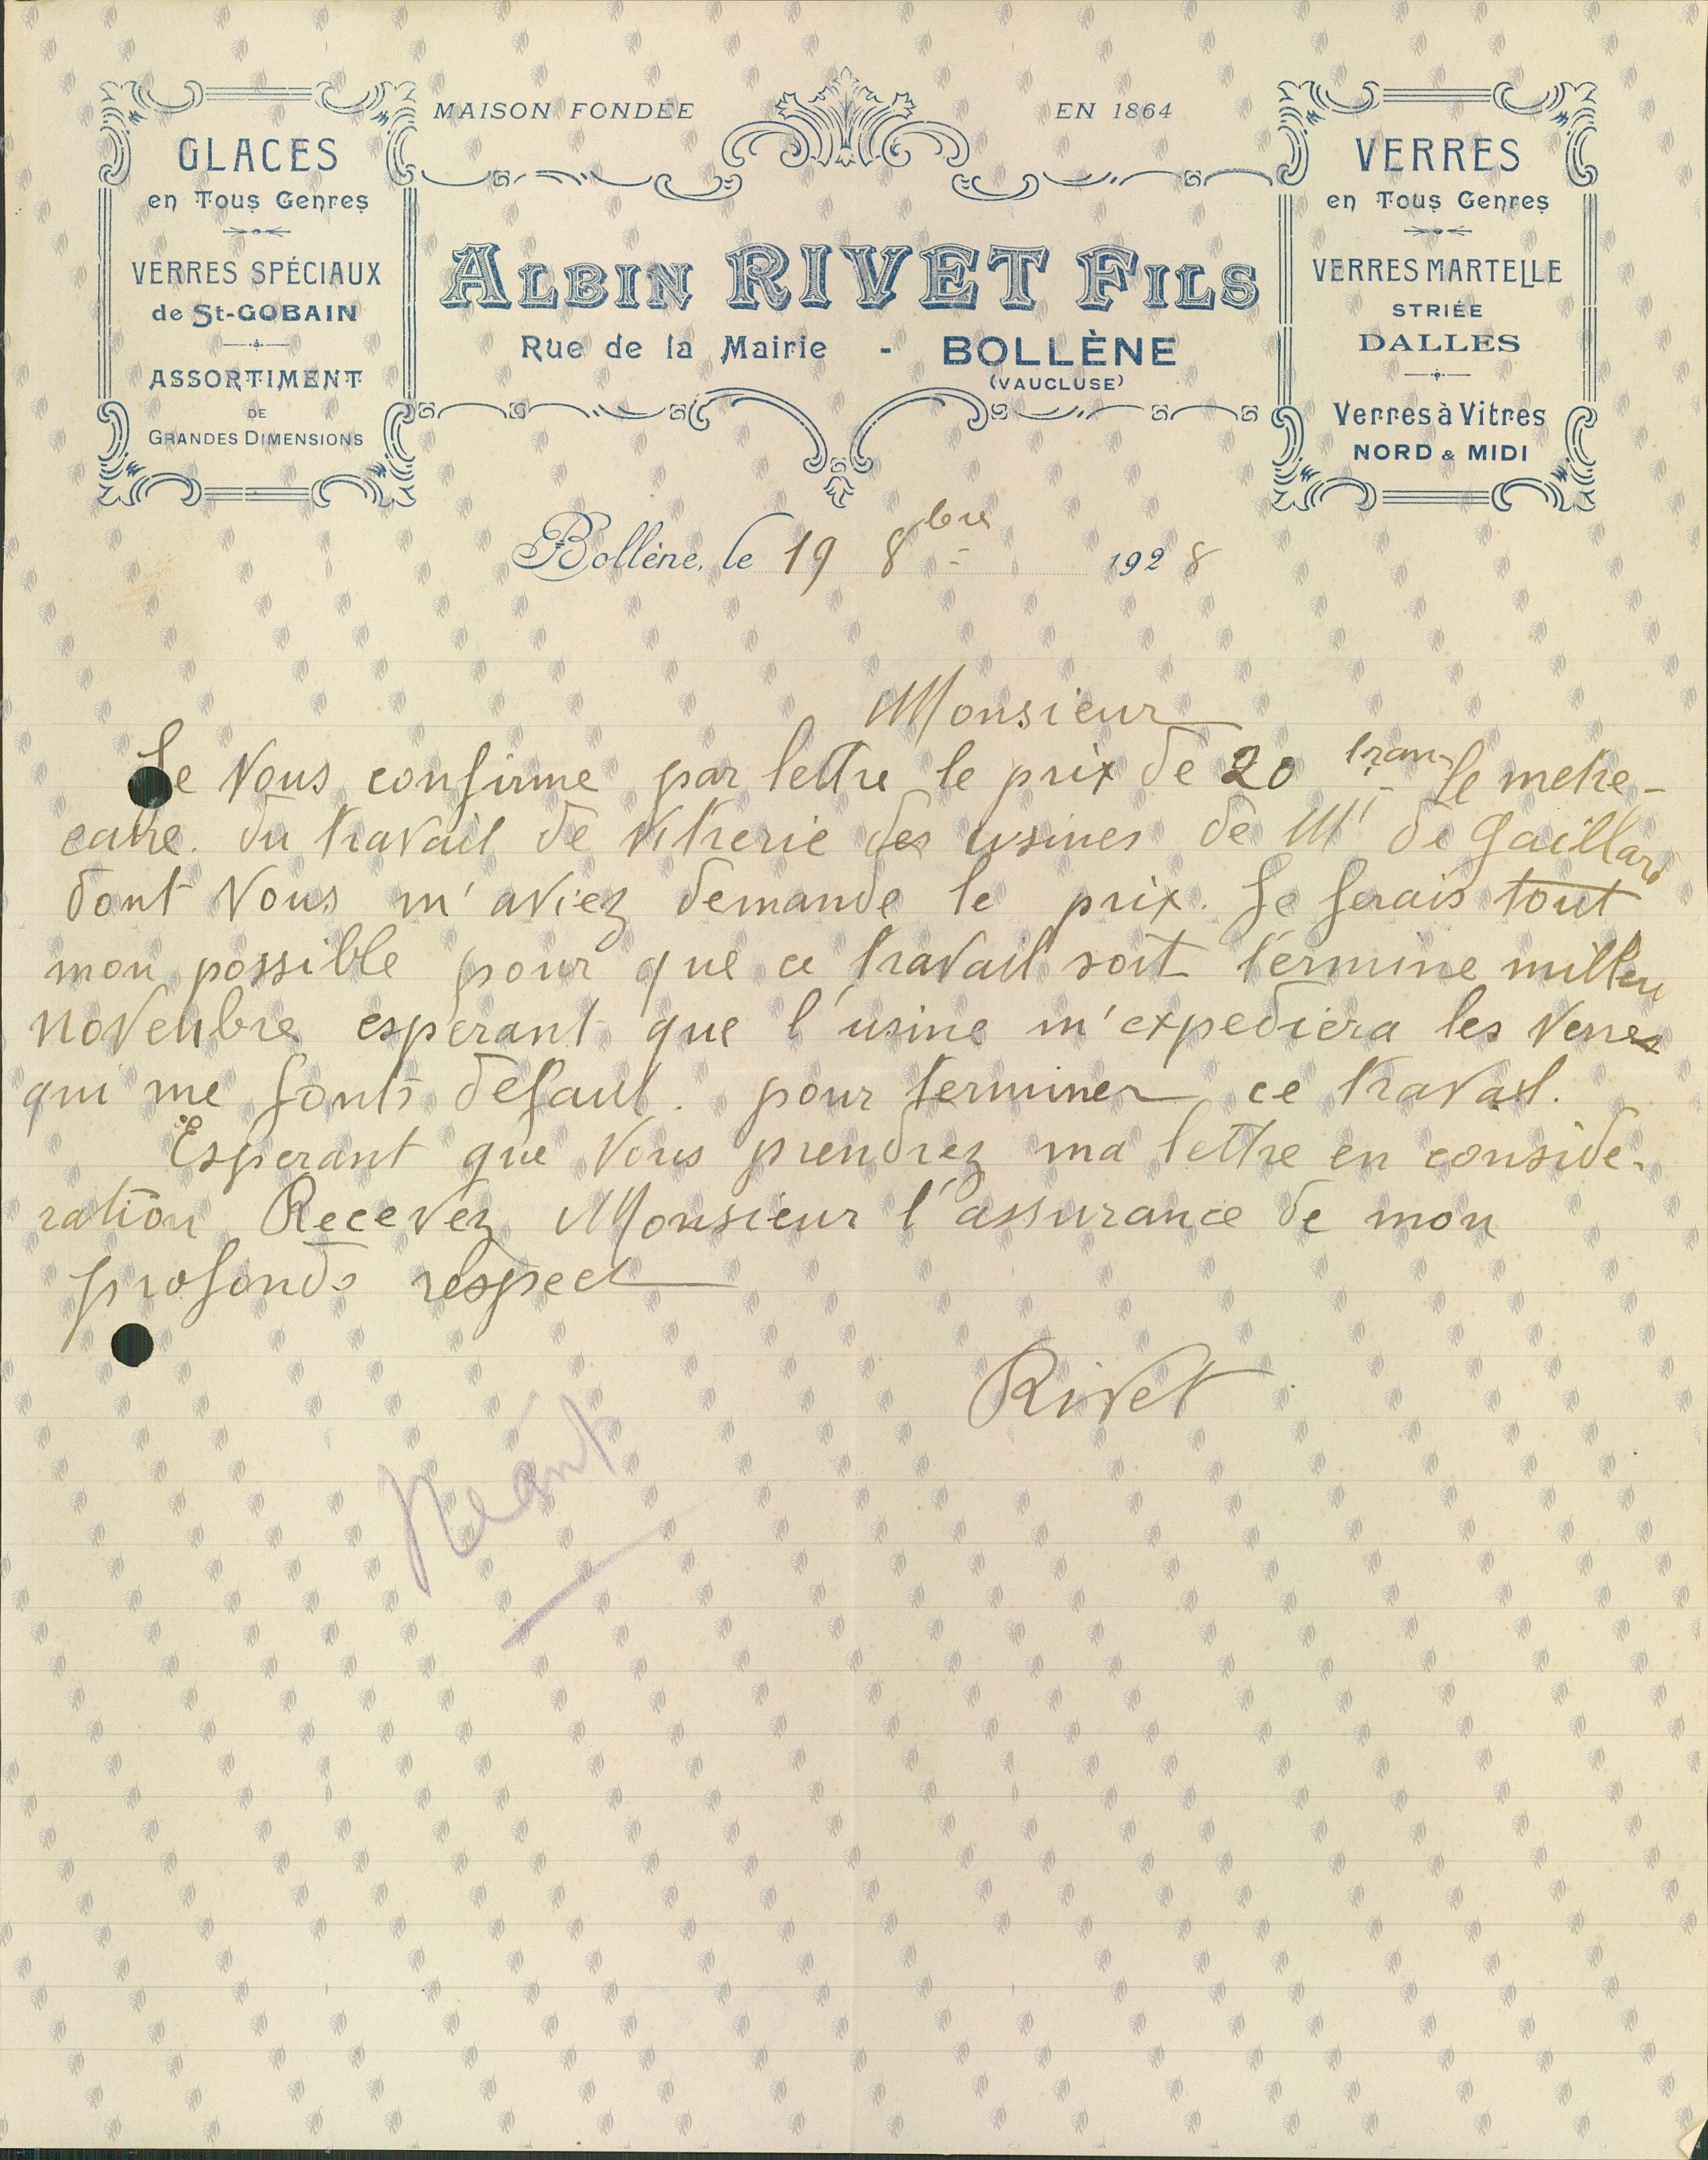 MAISON FONDÉE EN 1864
GLACES
en Tous Genres
VERRES SPÉCIAUX
de St-GOBAIN
ASSORTIMENT
DE
GRANDES DIMENSIONS
ALBIN RIVET FILS
Rue de la Mairie - BOLLÈNE
(VAUCLUSE)
VERRES
en Tous Genres
VERRES MARTELLE
STRIÉE
DALLES
Verres à Vitres
NORD & MIDI
Bollène, le 19 8bre 1928
Monsieur
Je Vous confirme par lettre le prix de 20 fran le metre-
carre. du travail de vitrerie des usines de Mr de Gaillard
dont Vous m'aviez demande le prix. Je ferais tout
mon possible pour que ce travail soit termine millieu
novenbre esperant que l'usine m'expediera les verres
qui me fonts defaut. pour terminer ce travail.
Esperant que Vous prendrez ma lettre en conside-
ration Recevez Monsieur l'assurance de mon
profonds respect
Rivet
Néant